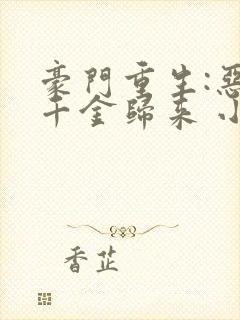 豪門重生:惡
千金歸來 小
香芷